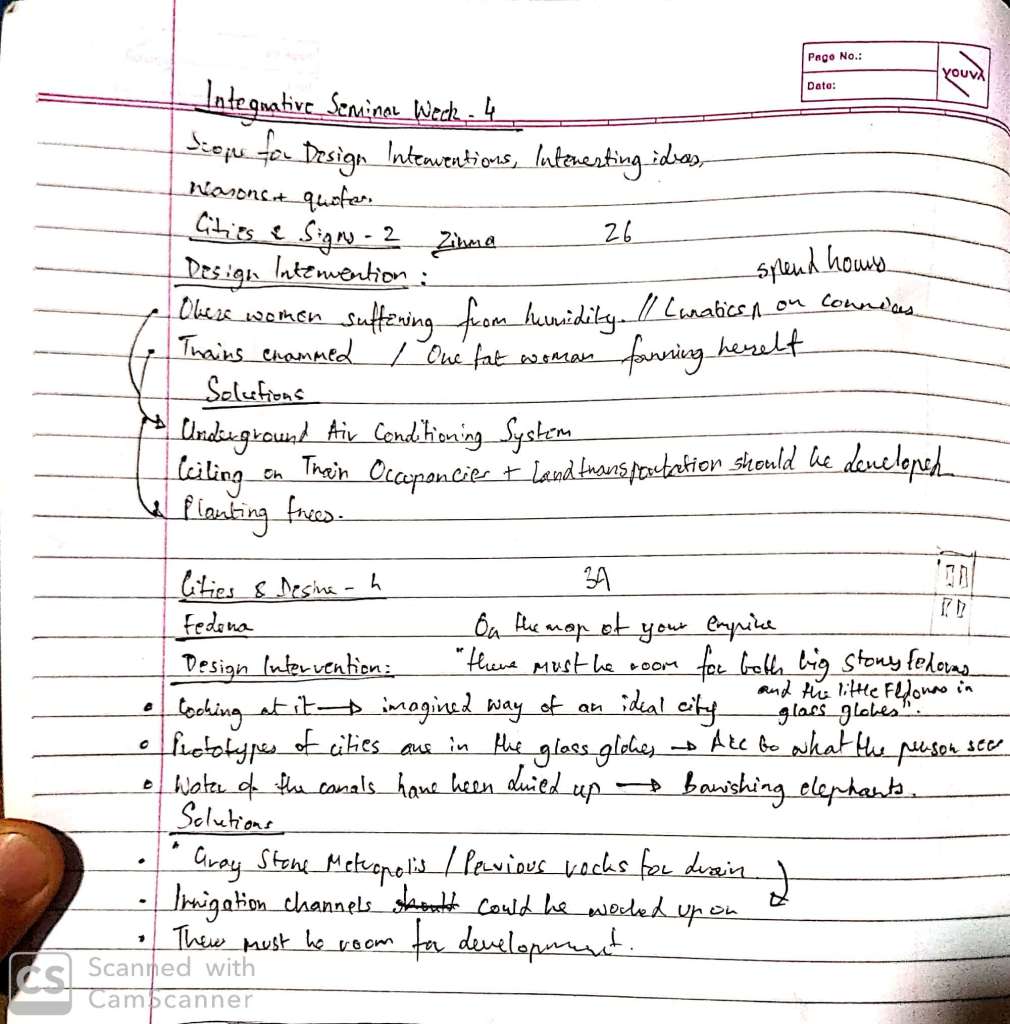 Page No.:
Date:
YOUVA
Integrative Seminar Week - 4
Scope for Design Interventions, Interesting ideas,
reasons + quotes.
Cities & Signs - 2 Zirma 26
Design Intervention : spend hours
Obese women suffering from humidity. // Lunatics ^ on cornices
Trains crammed / One fat woman fanning herself
Solutions
Underground Air Conditioning System
Ceiling on Train Occupancies + Land transportation should be developed
Planting trees.
Cities & Desire - 4
Fedora On the map of your empire
Design Intervention: "there must be room for both big stony fedoras
and the little Fedoras in
Looking at it → imagined way of an ideal city glass globes".
Prototypes of cities are in the glass globes → Acc to what the person sees
Water of the canals have been dried up → banishing elephants.
Solutions
Gray Stone Metropolis / Pervious rocks for drain
Irrigation channels should could be worked upon
There must be room for development.
CS Scanned with
CamScanner